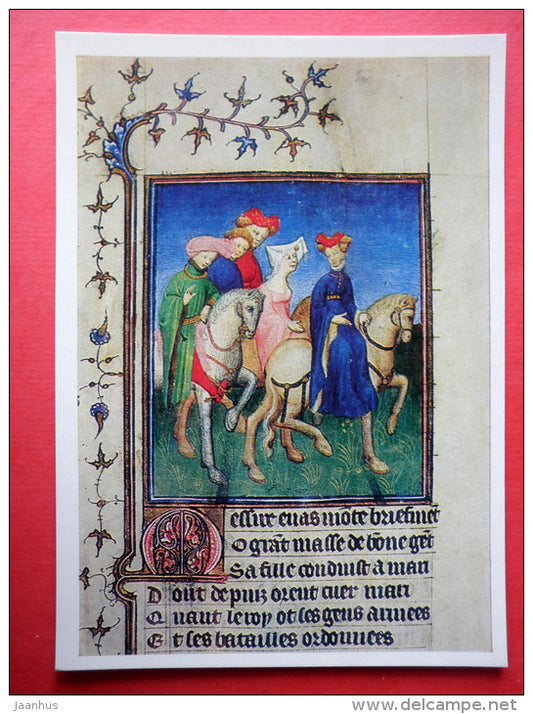 Messire euas mōte briefmēt
O grāt masse de bōne gēt
Sa fille conduist a mari
Dont de puiz orent cuer mari
Quant le roy ot les gens armees
Et les batailles ordonnees
Jaanhus
www.delcampe.net